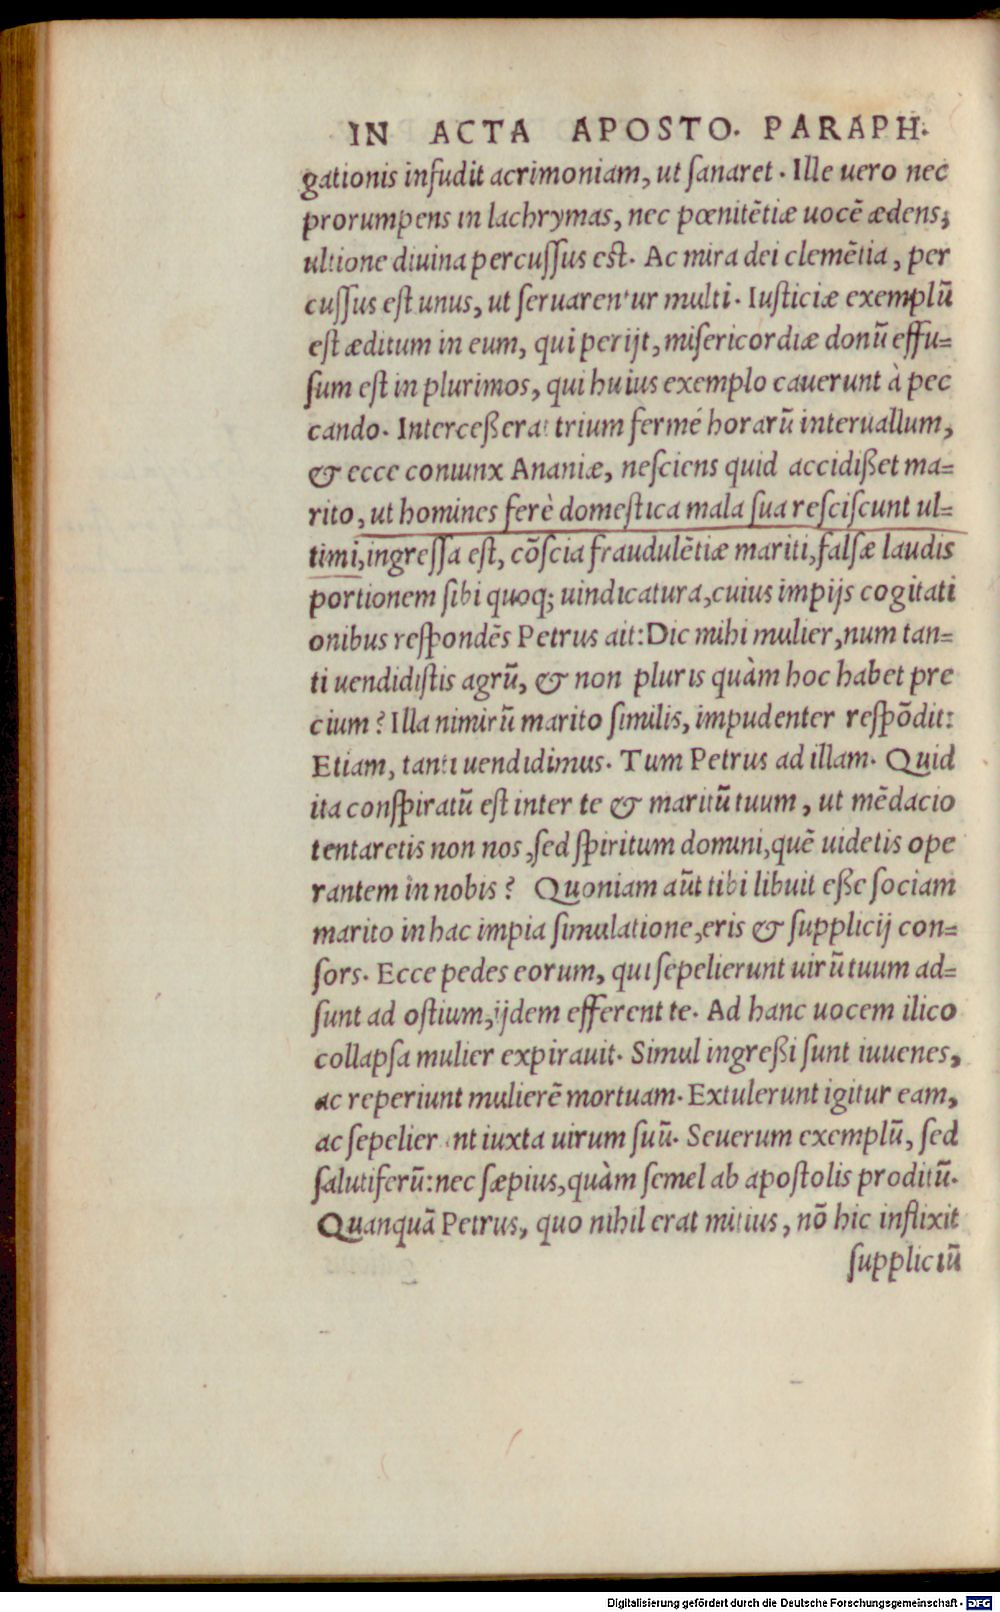 IN ACTA APOSTO. PARAPH.
gationis infudit acrimoniam, ut sanaret. Ille uero nec
prorumpens in lachrymas, nec pœnitẽtiæ uocẽ ædens,
ultione diuina percussus est. Ac mira dei clemẽtia, per
cussus est unus, ut seruarentur multi. Iusticiæ exemplũ
est æditum in eum, qui perijt, misericordiæ donũ effu=
sum est in plurimos, qui huius exemplo cauerunt à pec
cando. Interceßerat trium fermé horarũ interuallum,
& ecce coniunx Ananiæ, nesciens quid accidißet ma=
rito, ut homines ferè domestica mala sua resciscunt ul=
timi, ingressa est, cõscia fraudulẽtiæ mariti, falsæ laudis
portionem sibi quoq; uindicatura, cuius impijs cogitati
onibus respondẽs Petrus ait: Dic mihi mulier, num tan=
ti uendidistis agrũ, & non pluris quàm hoc habet pre
cium? Illa nimirũ marito similis, impudenter respõdit:
Etiam, tanti uendidimus. Tum Petrus ad illam. Quid
ita conspiratũ est inter te & maritũ tuum, ut mẽdacio
tentaretis non nos, sed spiritum domini, quẽ uidetis ope
rantem in nobis? Quoniam aũt tibi libuit eße sociam
marito in hac impia simulatione, eris & supplicij con=
sors. Ecce pedes eorum, qui sepelierunt uirũ tuum ad=
sunt ad ostium, ijdem efferent te. Ad hanc uocem ilico
collapsa mulier expirauit. Simul ingreßi sunt iuuenes,
ac reperiunt mulierẽ mortuam. Extulerunt igitur eam,
ac sepelierunt iuxta uirum suũ. Seuerum exemplũ, sed
salutiferũ: nec sæpius, quàm semel ab apostolis proditũ.
Quanquã Petrus, quo nihil erat mitius, nõ hic inflixit
suppliciũ
Digitalisierung gefördert durch die Deutsche Forschungsgemeinschaft - DFG